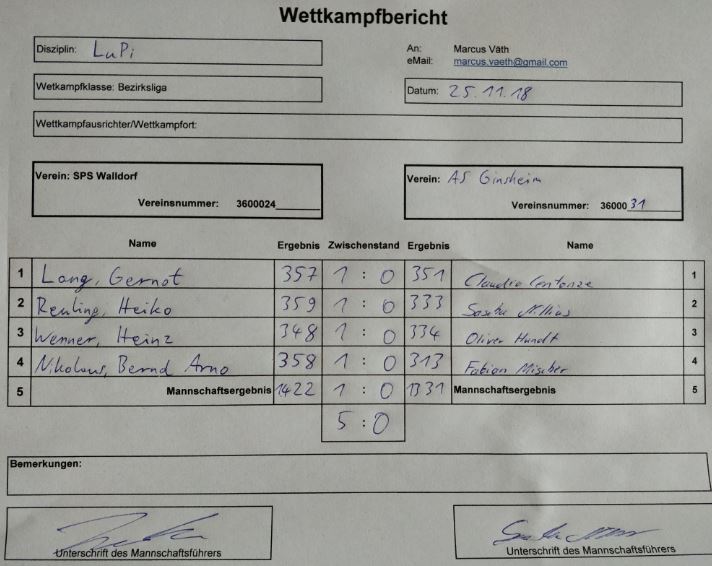 Wettkampfbericht
Disziplin: LuPi
An: Marcus Väth
eMail: marcus.vaeth@gmail.com
Wetkampfklasse: Bezirksliga
Datum: 25.11.18
Wettkampfausrichter/Wettkampfort:
Verein: SPS Walldorf
Vereinsnummer: 3600024
Verein: AS Ginsheim
Vereinsnummer: 36000 31
Name Ergebnis Zwischenstand Ergebnis Name
1 Lang, Gernot 357 1 : 0 351 Claudio Centonze 1
2 Reuling, Heiko 359 1 : 0 333 Sascha 2
3 Wenner, Heinz 348 1 : 0 334 Oliver Hundt 3
4 Nikolaus, Bernd Arno 358 1 : 0 313 Fabian Mischer 4
5 Mannschaftsergebnis 1422 1 : 0 1331 Mannschaftsergebnis 5
5 : 0
Bemerkungen:
Unterschrift des Mannschaftsführers
Unterschrift des Mannschaftsführers